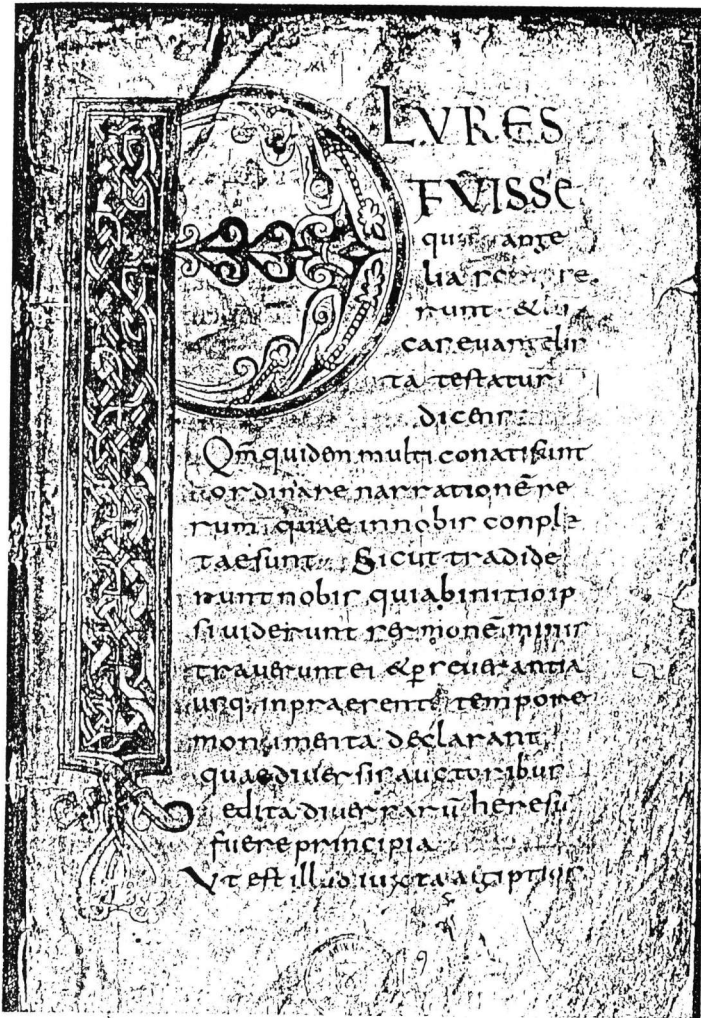 PLVRES
FVISSE
qui ange
lia
runt &
cas evangelis
ta testatur
dicens
Qm̄ quidem multi conati sunt
ordinare narrationē re
rum quae in nobis conple
tae sunt Sicut tradide
runt nobis qui ab initio ip
si viderunt sermonē minis
traverunt ei & p̱severantia
usq; in praesens tempore
monumenta declarant
quae diversis auctoribus
edita diversarū heresū
fuere principia
Vt est illud iuxta aegiptios
9